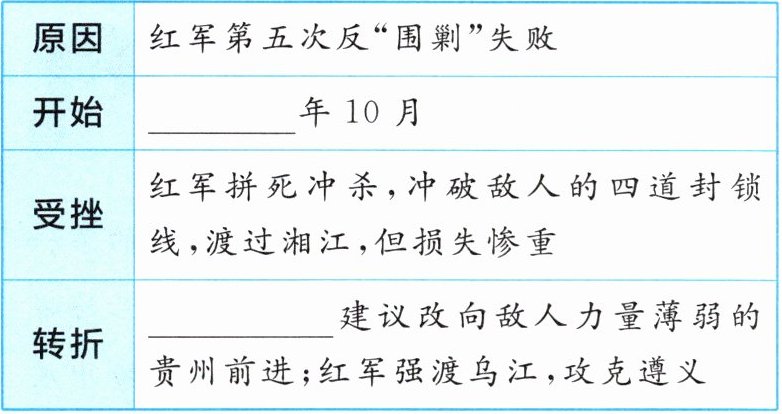 原因 红军第五次反“围剿”失败
开始 ________年 10 月
受挫 红军拼死冲杀,冲破敌人的四道封锁
线,渡过湘江,但损失惨重
转折 __________建议改向敌人力量薄弱的
贵州前进;红军强渡乌江,攻克遵义